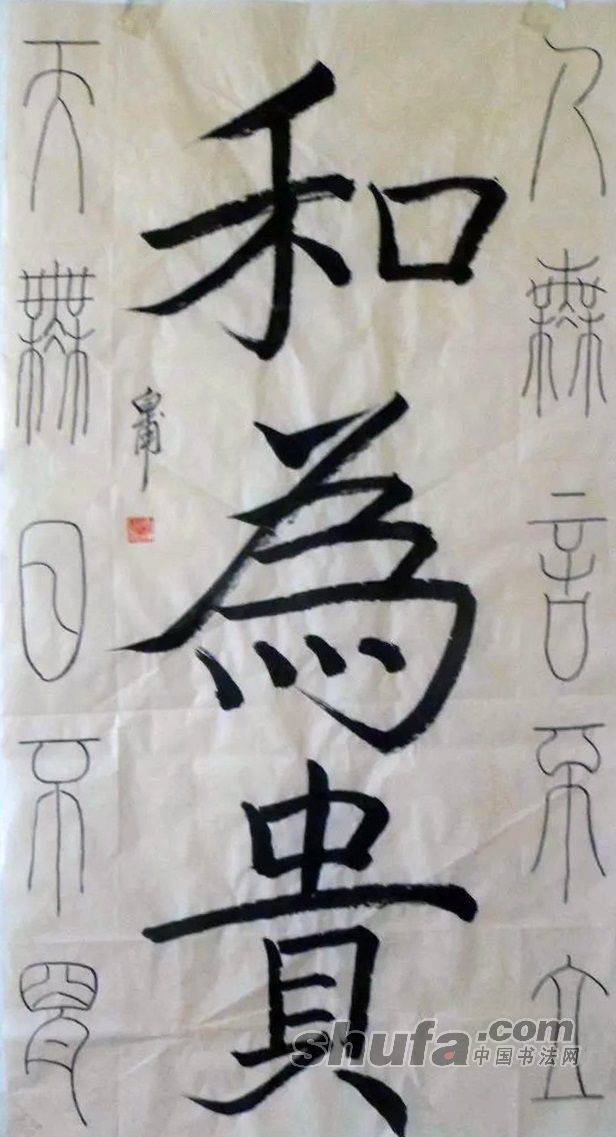 人無言不立
和為貴
天無日不
shufa.com
中国书法网